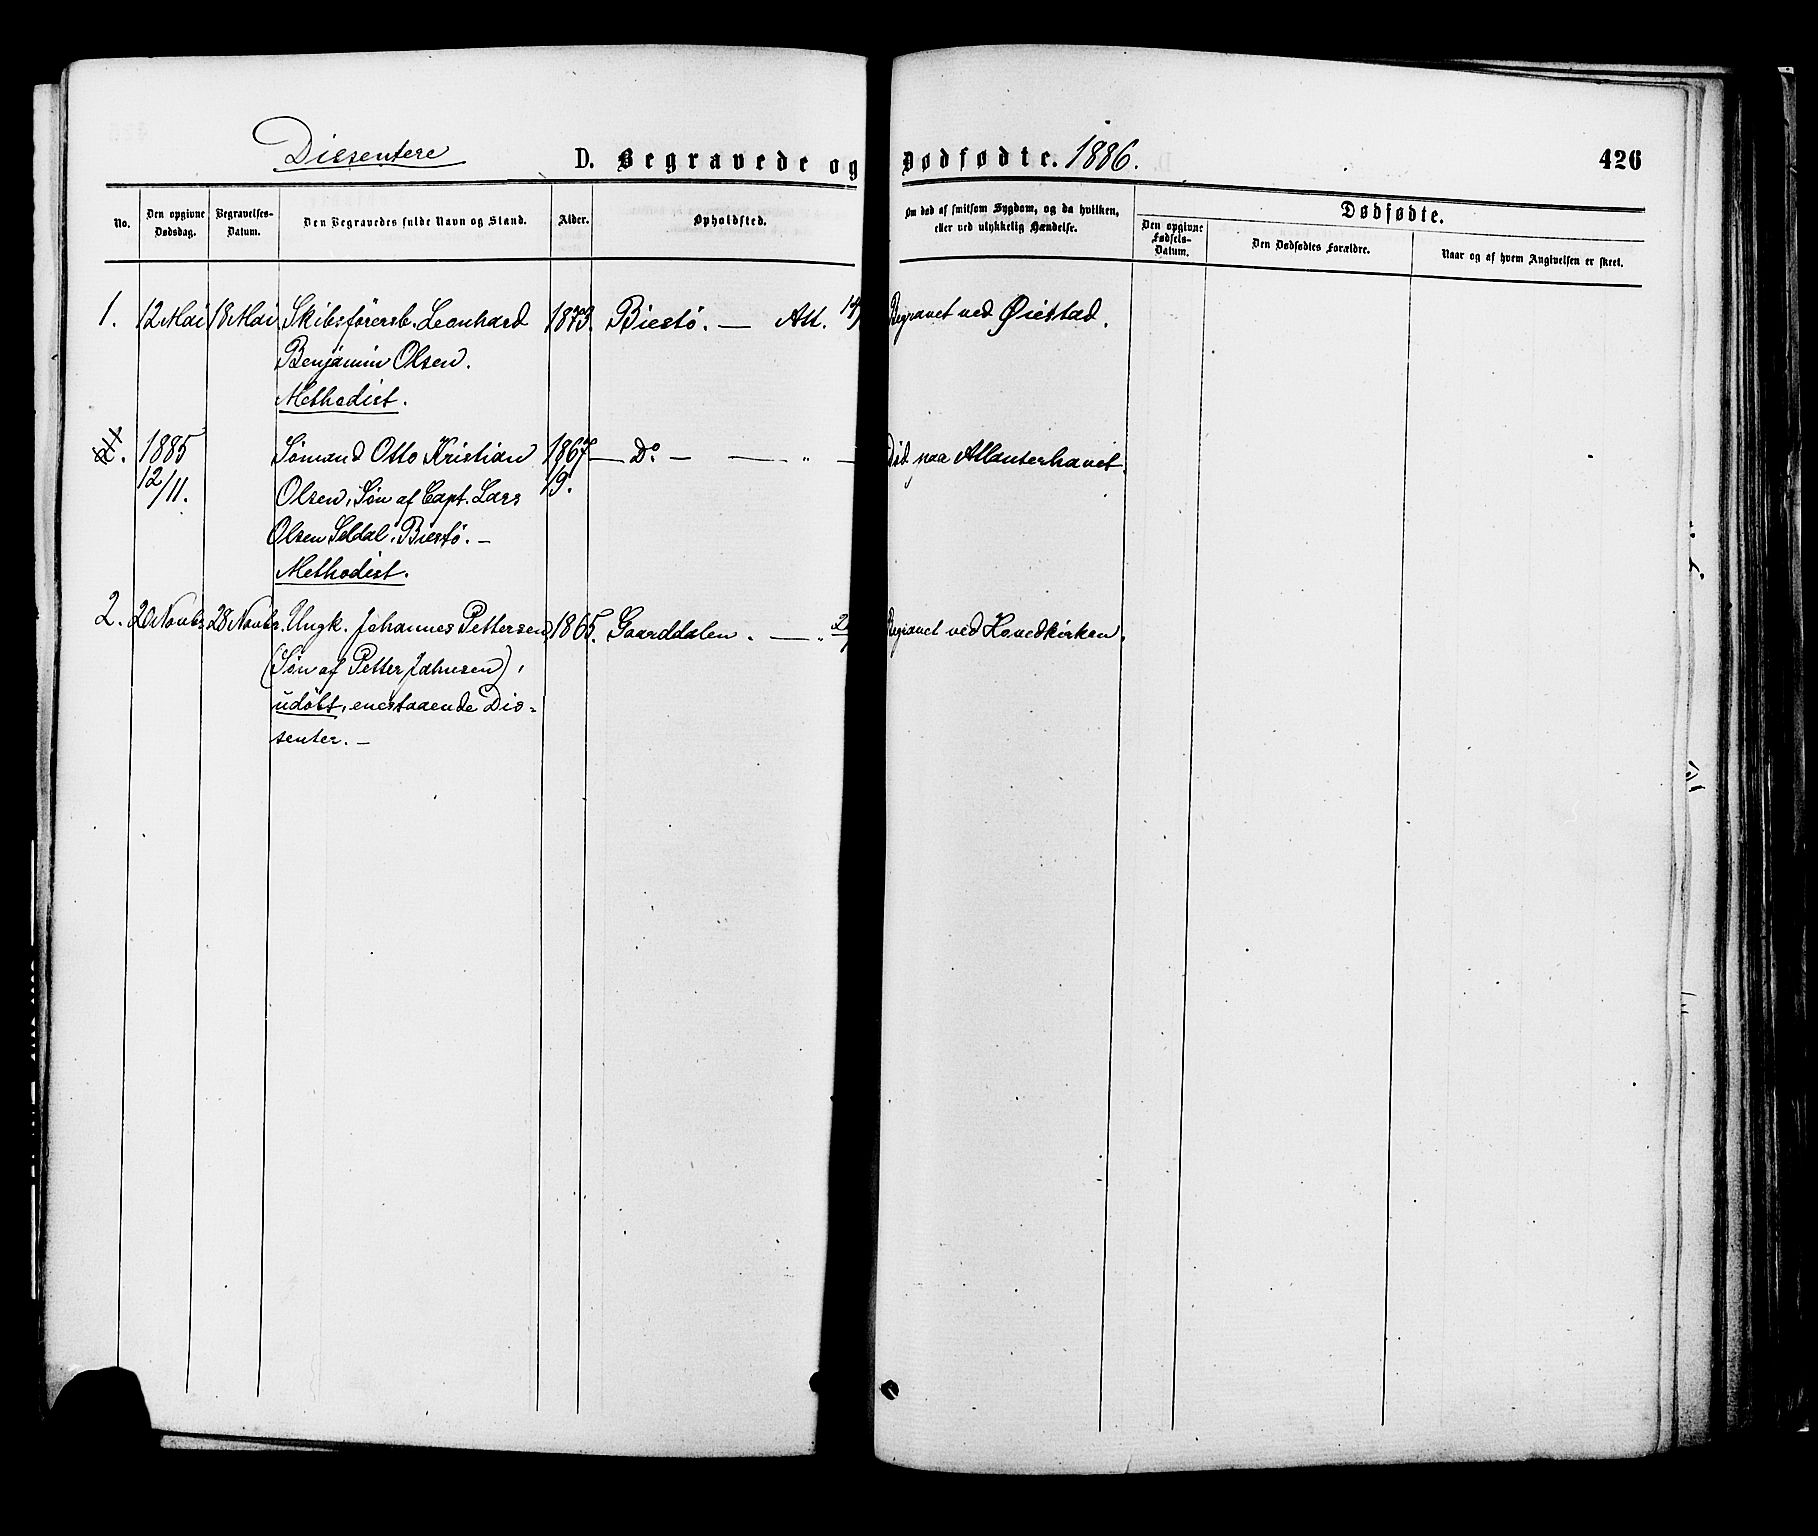 Dissentere D. Begravede og Dødfødte. 1886. 426
No. Den opgivne Dødsdag. Begravelses-Datum. Den Begravedes fulde Navn og Stand. Alder. Opholdsted. Om død af smitsom Sygdom, og da hvilken, eller ved ulykkelig Hændelse. Dødfødte.
Den opgivne Fødsels-Datum. Den Dødfødtes Forældre. Naar og af hvem Angivelsen er skeet.
1. 12 Mai 18 Mai Skibsførersb. Leonhard 1873. Biestø. — Att. Begravet ved Øiestad.
Benjamin Olsen.
Methodist.
1885 Sømand Otto Kristian 1867 — Do — — " — Død paa Atlanterhavet.
12/11. Olsen, Søn af Capt. Lars 19.
Olsen Seldal, Biestø. —
Methodist.
2. 20 Novbr 28 Novbr. Ungk. Johannes Pettersen, 1865. Gaarddalen. — " Begravet ved Hovedkirken.
(Søn af Petter Johnsen),
udøbt, enestaaende Dis-
senter. —